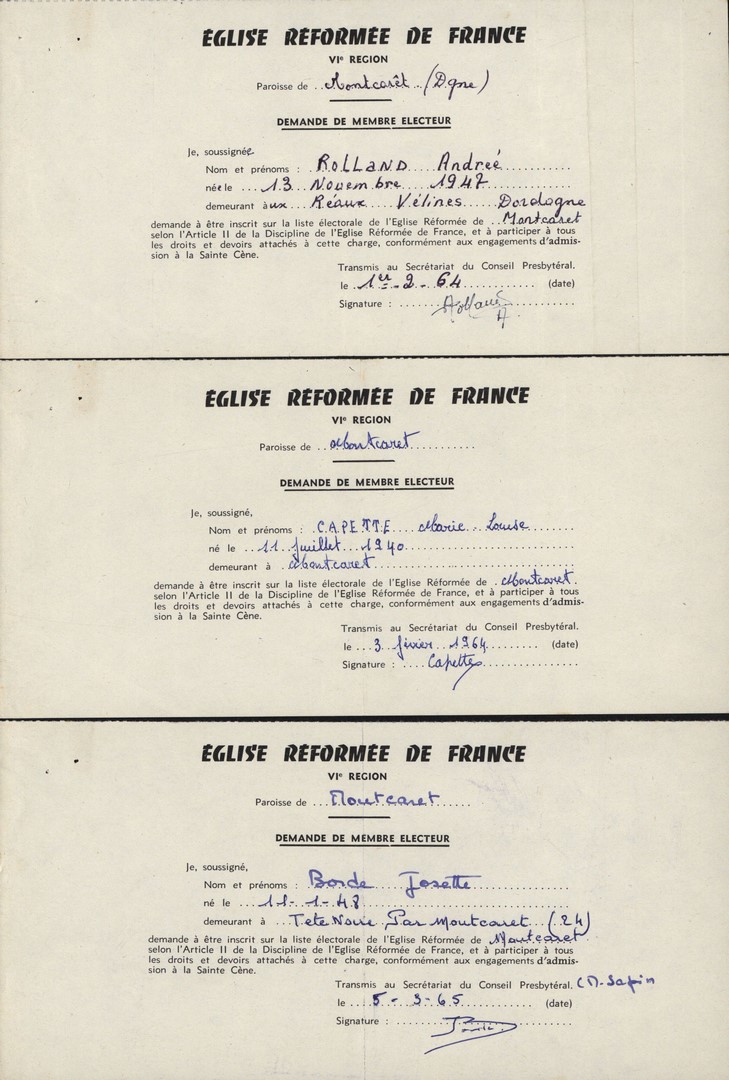 ÉGLISE RÉFORMÉE DE FRANCE
VIe REGION
Paroisse de ..Montcarêt..(Dgne)
DEMANDE DE MEMBRE ELECTEUR
Je, soussignée
Nom et prénoms : ROLLAND Andreé
née le 13 Novembre 1947
demeurant aux Réaux Vélines Dordogne
demande à être inscrit sur la liste électorale de l'Eglise Réformée de Montcaret
selon l'Article II de la Discipline de l'Eglise Réformée de France, et à participer à tous
les droits et devoirs attachés à cette charge, conformément aux engagements d'admis-
sion à la Sainte Cène.
Transmis au Secrétariat du Conseil Presbytéral.
le 1er-2-64 (date)
Signature : Rolland
A
ÉGLISE RÉFORMÉE DE FRANCE
VIe REGION
Paroisse de Montcaret
DEMANDE DE MEMBRE ELECTEUR
Je, soussigné,
Nom et prénoms : CAPETTE Marie Louise
né le 11 juillet 1940
demeurant à Montcaret
demande à être inscrit sur la liste électorale de l'Eglise Réformée de Montcaret.
selon l'Article II de la Discipline de l'Eglise Réformée de France, et à participer à tous
les droits et devoirs attachés à cette charge, conformément aux engagements d'admis-
sion à la Sainte Cène.
Transmis au Secrétariat du Conseil Presbytéral.
le 3 février 1964 (date)
Signature : Capette
ÉGLISE RÉFORMÉE DE FRANCE
VIe REGION
Paroisse de Montcaret
DEMANDE DE MEMBRE ELECTEUR
Je, soussigné,
Nom et prénoms : Borde Josette
né le 11-1-48
demeurant à Tete Noire Par Montcaret (24)
demande à être inscrit sur la liste électorale de l'Eglise Réformée de Montcaret
selon l'Article II de la Discipline de l'Eglise Réformée de France, et à participer à tous
les droits et devoirs attachés à cette charge, conformément aux engagements d'admis-
sion à la Sainte Cène.
Transmis au Secrétariat du Conseil Presbytéral. (M. Sapin
le 5-3-65 (date)
Signature :